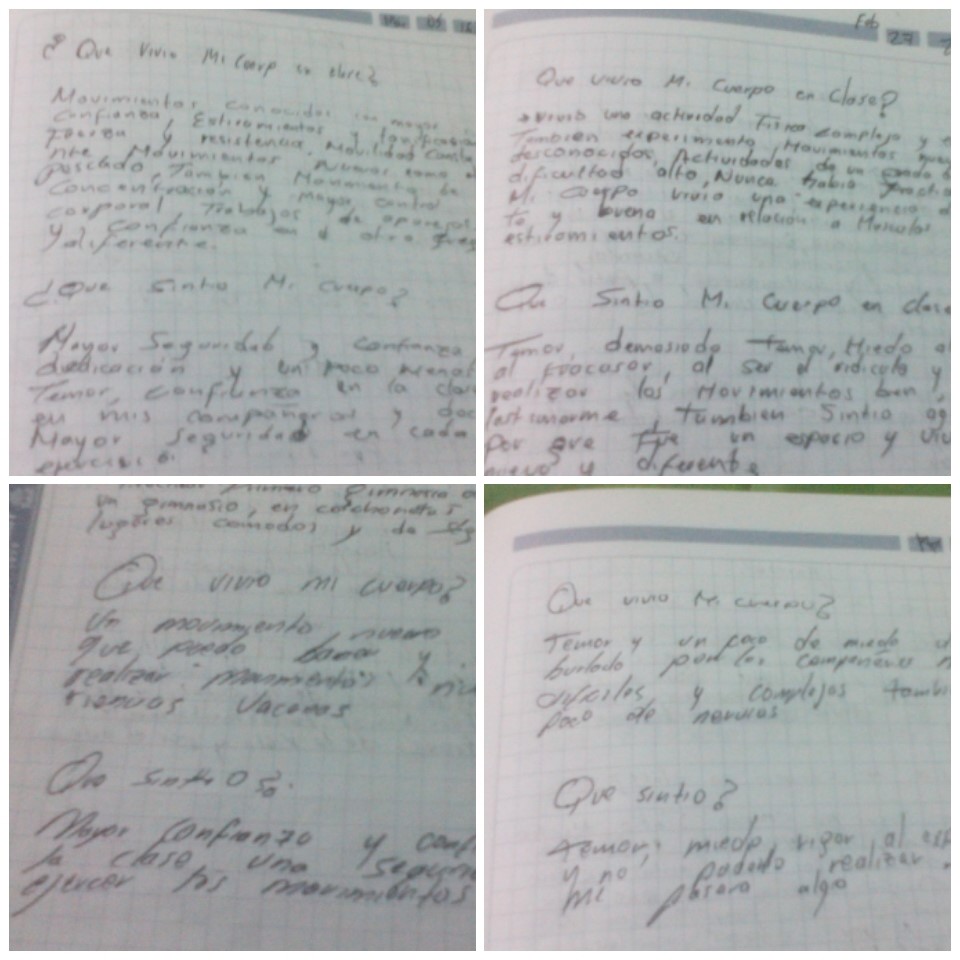 ¿Que vivio Mi Cuerp en clase?
Movimientos conocidos con mayor
confianza, Estiramientos y tonificación
Fuerza y resistencia. Movilidad
Movimientos Nuevos como
Tambien Movimiento de
Concentración y Mayor control
corporal Trabajos de aparejos
y confianza en el otro
y diferente.
¿Que Sintio Mi Cuerpo?
Mayor Seguridad y confianza
dedicación y un poco menos
Temor, confianza en la clase
en mis compañeros y doc
Mayor Seguridad en cada
ejercicio.
Feb 27
Que vivio Mi Cuerpo en Clase?
→ vivio una actividad Fisica compleja y e
Tambien experimento, Movimientos
desconocidos, Actividades de un grado
dificultad alto, Nunca habia practi
Mi Cuerpo vivio una experiencia
te y buena en relación a Musculos
estiramientos.
Que Sintio Mi Cuerpo en clase
Temor, demasiado temor, Miedo al
al Fracasar, al ser el ridiculo y
realizar los Movimientos bien,
lastimarme, Tambien Sintio ag
por que Fue un espacio y viv
nuevo y diferente
primero gimnasia
un gimnasio, en colchonetas
lugares comodos y de seg
Que vivio mi cuerpo?
Un movimiento nuevo
que puedo
realizar movimientos
Que sintio?
Mayor confianza y conf
la clase una segurid
ejercer los movimientos
Que vivio Mi cuerpo?
Temor y un poco de miedo
burlado por los compañeros
dificiles y complejos tambi
poco de nervios
Que sintio?
temor, miedo, rigor, al
y no poderlo realizar
Mi pasara algo